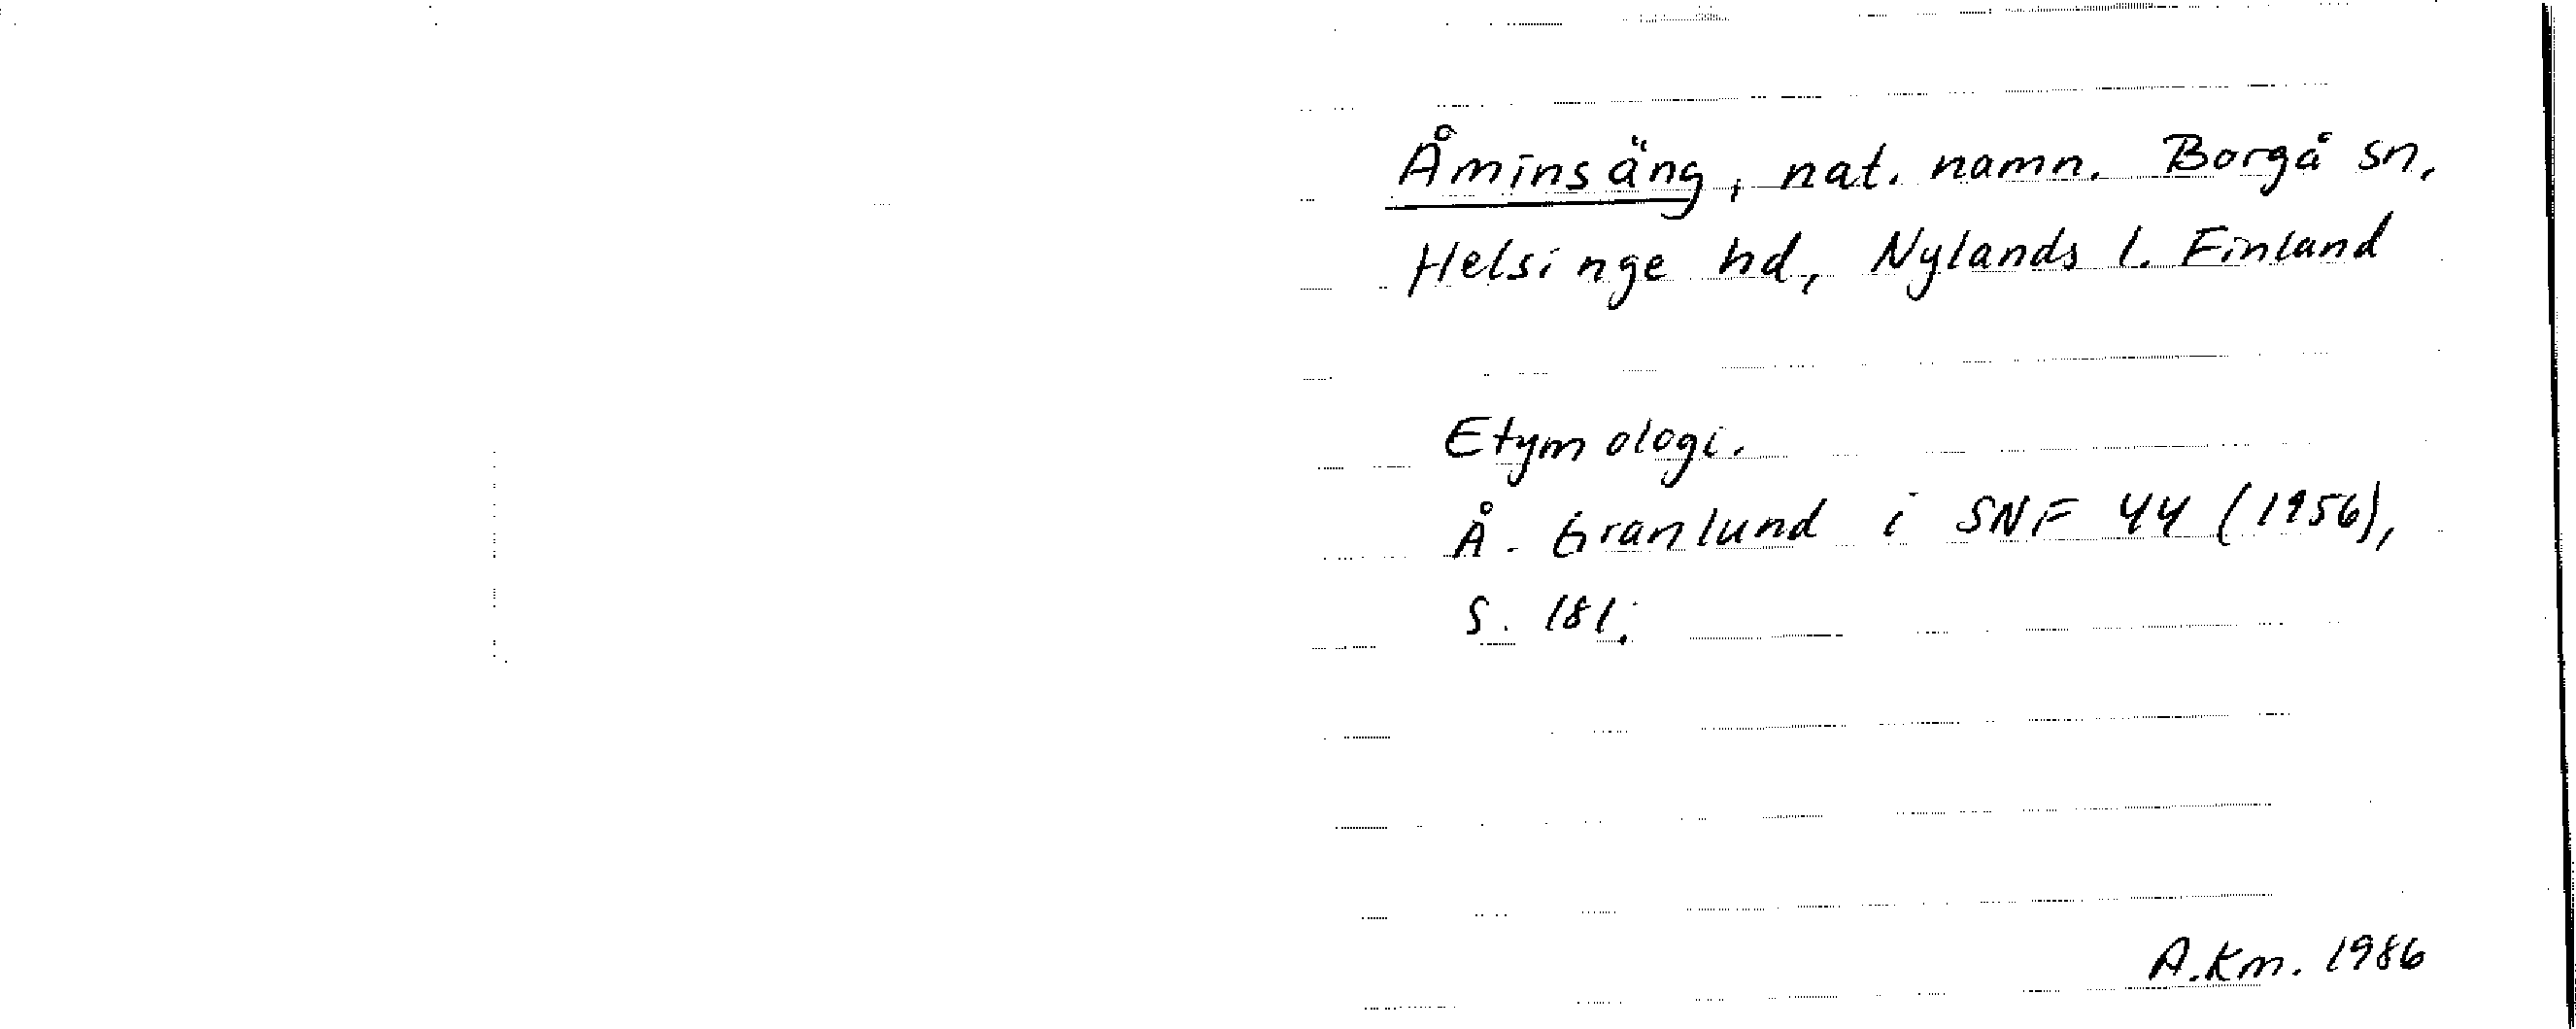 Åminsäng, nat. namn. Borgå sn,
Helsinge hd, Nylands l. Finland
Etymologi.
Å. Granlund i SNF 44 (1956),
S. 181.
A.Km. 1986